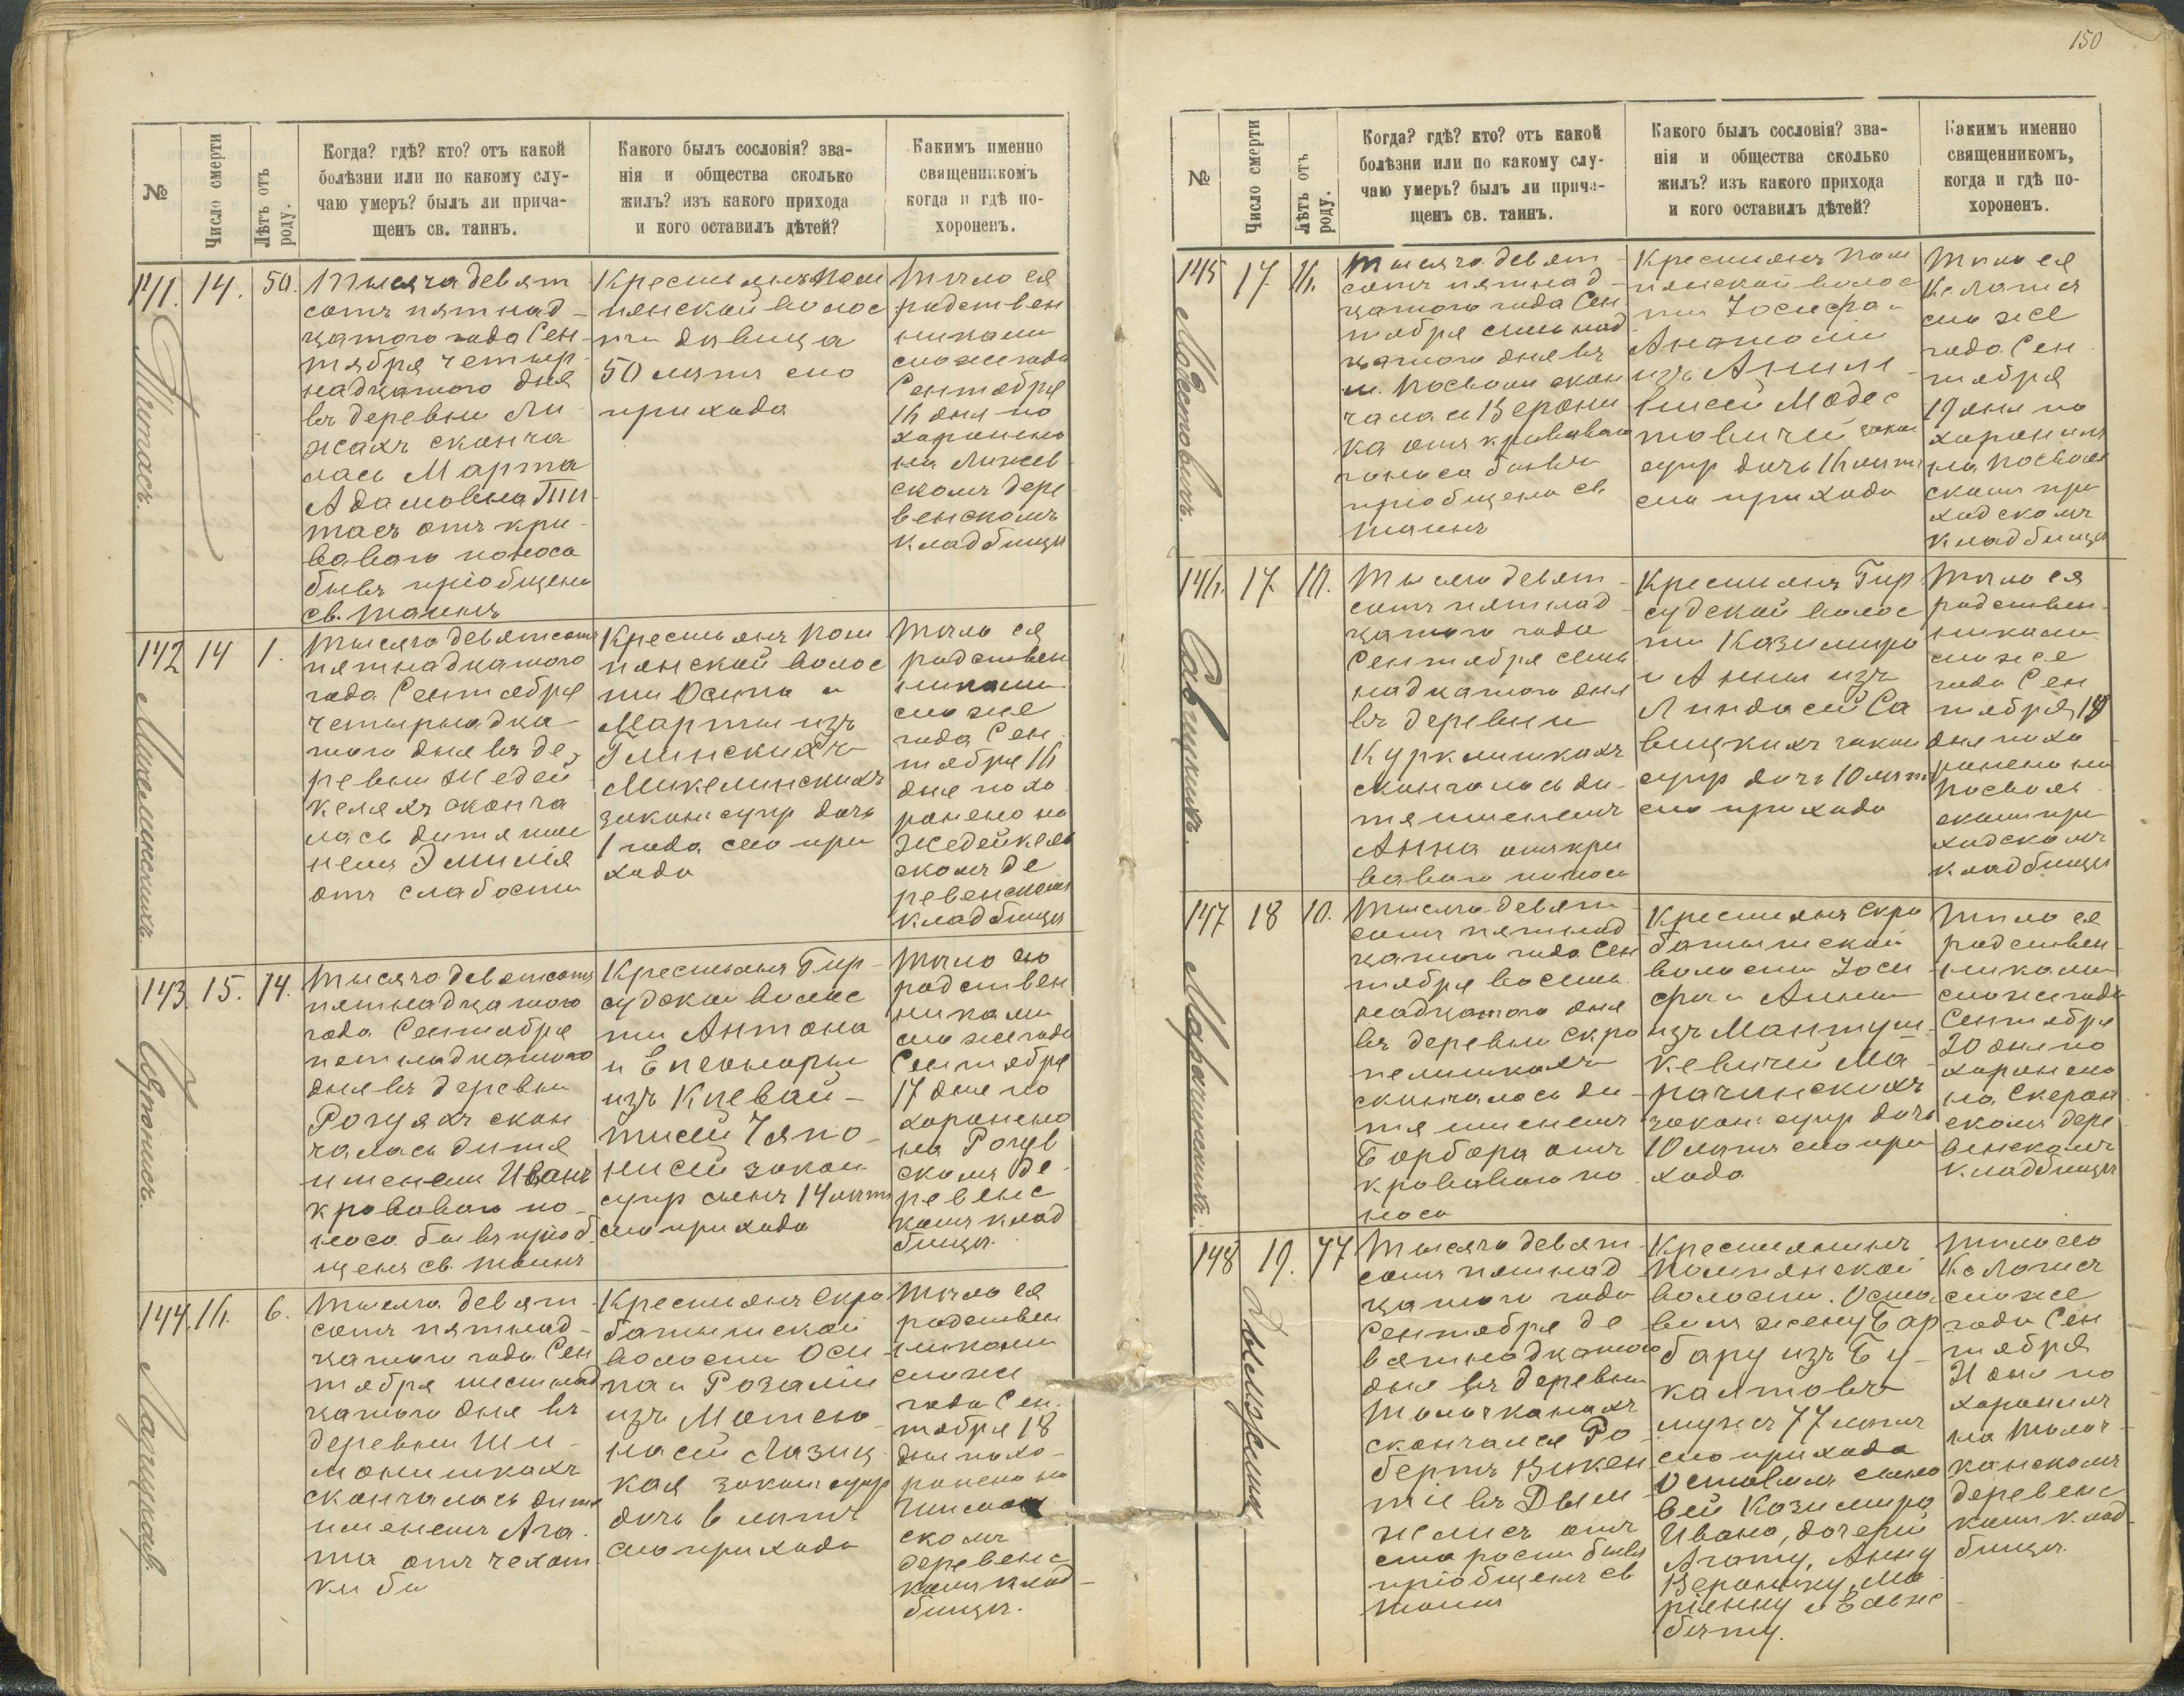 150
№
Число смерти
Лѣтъ отъ роду.
Когда? гдѣ? кто? отъ какой
болѣзни или по какому слу-
чаю умеръ? былъ ли прича-
щенъ св. таинъ.
Какого былъ сословія? зва-
нія и общества сколько
жилъ? изъ какого прихода
и кого оставилъ дѣтей?
Какимъ именно
священникомъ
когда и гдѣ по-
хороненъ.
141. 14. 50.
Титасъ.
Тысяча девят
сотъ пятнад-
цатого года Сен-
тября четыр-
надцатого дня
въ деревни Ли-
жахъ сконча
лась Марта
Адамовна Тит
тасъ отъ кри-
ваваго поноса
бывъ пріобщена
св. таинъ
Крестьянъ Пош
пянской волос
ти дѣвица
50 лѣтъ сего
прихода
Тѣло ея
родствен
никами
сего же года
Сентября
16 дня по
хоронено
на Лижев
скомъ дере
венскомъ
кладбищѣ
142 14 1.
Микелинскихъ
Тысяча девятсотъ
пятнадцатого
года Сентября
четырнадца-
того дня въ де-
ревни Жедей
келяхъ сконча
лась дитя име
немъ Эмилія
отъ слабости
Крестьянъ Пош
пянской волос
ти Осипа и
Марты изъ
Глинскихъ
Микелинскихъ
закон супр дочь
1 года сего при
хода
Тѣло ея
родствен
никами
сего же
года Сен
тября 16
дня похо
ронено на
Жедейкель
скомъ де
ревенскомъ
кладбищѣ
143. 15. 14.
Чапонисъ.
Тысяча девятсотъ
пятнадцатого
года Сентября
пятнадцатого
дня въ деревни
Рогуяхъ скон
чалась дитя
именемъ Иванъ
кроваваго по-
носа бывъ пріоб
щенъ св. таинъ
Крестьянъ Гир-
судской волос
ти Антона
и Елеоноры
изъ Клевай-
тисей Чяпо-
нисей закон
супр сынъ 14 лѣтъ
сего прихода
Тѣло его
родствен
никами
сего же года
Сентября
17 дня по
хоронено
на Рогуев
скомъ де-
ревенс
комъ клад
бищѣ.
144. 16. 6.
Лазицкая.
Тысяча девят
сотъ пятнад-
цатого года Сен
тября шестнад
цатого дня въ
деревни Ши-
монишкахъ
скончалась дитя
именемъ Ага
та отъ чехот
ки бы
Крестьянъ Скро
батышской
волости Оси-
па и Розалии
изъ Матею-
насей Лазиц
кая закон супр
дочь 6 лѣтъ
сего прихода
Тѣло ея
родствен
никами
сего же
года Сен.
тября 18
дня похо-
ронено на
скомъ
деревенс
комъ клад-
бищѣ.
№
Число смерти
Лѣтъ отъ роду.
Когда? гдѣ? кто? отъ какой
болѣзни или по какому слу-
чаю умеръ? былъ ли прича-
щенъ св. таинъ.
Какого былъ сословія? зва-
нія и общества сколько
жилъ? изъ какого прихода
и кого оставилъ дѣтей?
Какимъ именно
священникомъ,
когда и гдѣ по-
хороненъ.
145 17. 16.
Модестовичъ.
Тысяча девят-
сотъ пятнад-
цатого года Сен-
тября семьнад
цатого дня въ
м. Посволи скон
чалась Верони
ка отъ кроваваго
поноса бывъ
пріобщена св.
таинъ
Крестьянъ Пош
пянской волос
ти Іосифа-
Анатоли
изъ
Модес
товичей закон
супр дочь 16 лѣтъ
сего прихода
Тѣло ея
Кс Лотис
сего же
года Сен
тября
19 дня по
хоронилъ
на Посволь
скомъ при
ходскомъ
кладбищѣ
146. 17 10.
Савицкихъ.
Тысяча девят-
сотъ пятнад-
цатого года
Сентября семь
надцатого дня
въ деревни
Курклишкахъ
скончалась ди-
тя именемъ
Анна отъ кри
ваваго поноса
Крестьянъ Гир
судской волос
ти Казимира
и Анны изъ
Линдасей Са
вицкихъ закон
супр дочь 10 лѣтъ
сего прихода
Тѣло ея
родствен-
никами
сего же
года Сен
тября 19
дня похо
ронено на
Посволь
скомъ при
ходскомъ
кладбищѣ
147 18 10.
Марачинскихъ.
Тысяча девят-
сотъ пятнад
цатого года Сен
тября восемь
надцатого дня
въ деревни Скро
пелишкахъ
скончалась ди-
тя именемъ
Борбора отъ
кроваваго по-
носа
Крестьянъ Скро
батышской
волости Іоси
фа и Анны
изъ Мантуш-
кевичей Ма-
рачинскихъ
закон: супр дочь
10 лѣтъ сего при
хода.
Тѣло ея
родствен-
никами
сего же года
Сентября
20 дня по
хоронено
на Скероп
скомъ дере
венскомъ
кладбищѣ
148 19. 77
Дымжелисъ
Тысяча девят-
сотъ пятнад
цатого года
Сентября де
вятнадцатого
дня въ деревни
Толочканахъ
скончался Ро-
бертъ Викен
тіевъ Дым
желисъ отъ
старости бывъ
пріобщенъ св
таинъ
Крестьянинъ
Пошпянской
волости. Оста
вилъ жену Бар
бару изъ Бу-
каятовъ
мужъ 77 лѣтъ
сего прихода
Оставилъ сыно
вей Казимира
Ивана, дочерей
Агату, Анну
Веронику, Ма
ріанну и Ельже
бѣту.
Тѣло его
Кс Лотис
сего же
года Сен
тября
21 дня по
хоронилъ
на Толоч-
канскомъ
деревенс
комъ клад-
бищѣ.